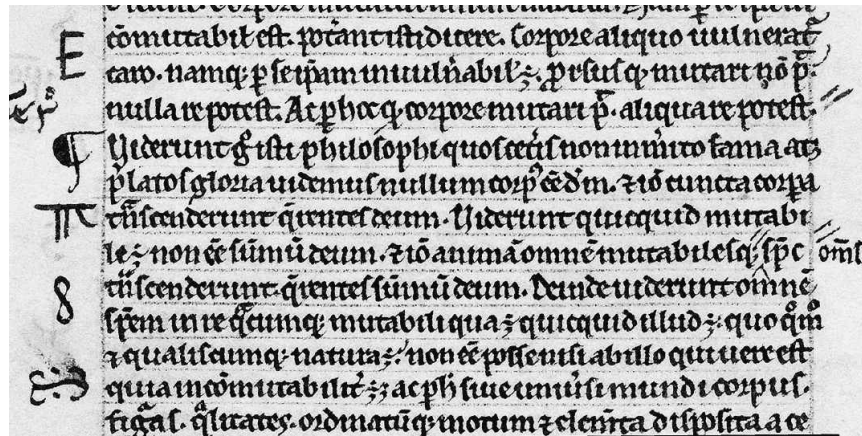 cōmutabil est. potāt isti dicere. Corpore aliquo uulneratˢ
caro. namq; ꝑ se ip̄am inuuln̄abil' ē. ꝓrsus q; mutari nō p̄.
nulla re potest. Ac ꝑ hoc q; corpore mutari p̄. aliqua re potest.
¶ Uiderunt gͥ isti philosophi quos cet̄is non inm̄ito fama atq;
p̄latos gloria uidemus nullum corpꝰ eē dm̄. ⁊ iō cuncta corꝑa
tͣnscenderunt q̄rentes deum. Uiderunt quicquid mutabi
le ē non eē sūmū deum. ⁊ iō animā omnē mutabilesq; sp̄c om̄s
tͣnscenderunt. q̄rentes sūmū deum. Deinde uiderunt om̄nē
sp̄em in re q̄cumq; mutabili qua ē quicquid illud ē. quo q̊m̊
⁊ qualiscumq; natura ē. non eē posse nisi ab illo qui uere est
quia incōmutabilit̄ ē ac ꝑh̄ siue uniūsi mundi corpus.
figͣas. q̄litates. ordinatūq; motum ⁊ elem̄ta disposita a ce